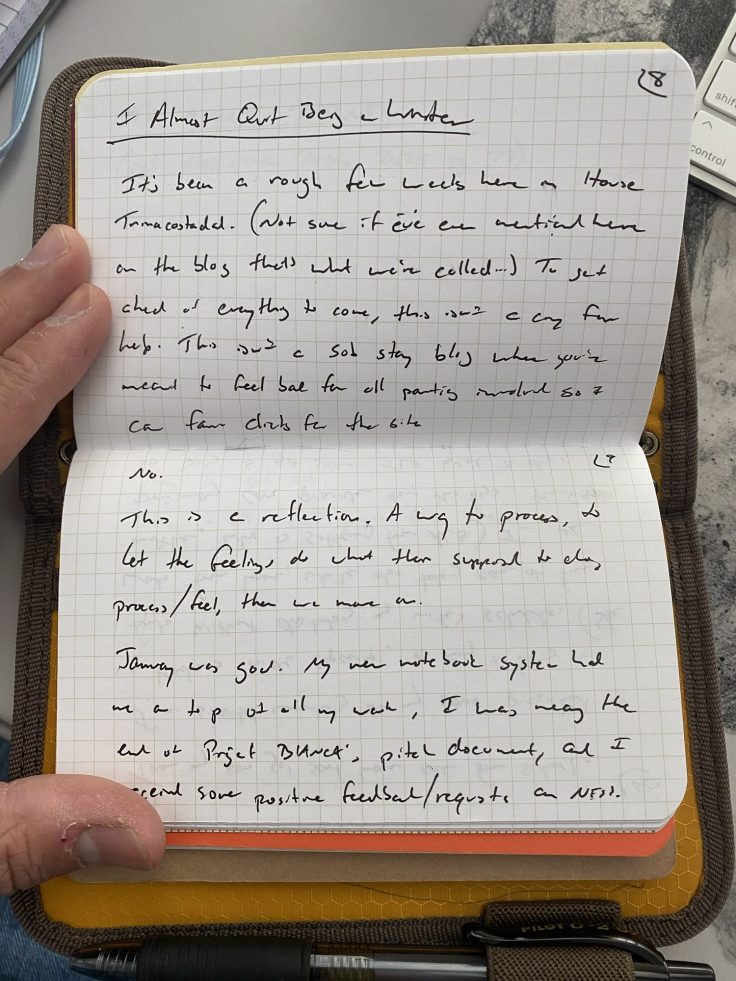 28
I Almost Quit Being a Writer
It's been a rough few weeks here in House
Trimacostadal. (Not sure if I've ever mentioned here
on the blog that's what we're called...) To get
ahead of everything to come, this isn't a cry for
help. This isn't a sob story blog where you're
meant to feel bad for all parties involved so I
can farm clicks for the site
No.
This is a reflection. A way to process, to
let the feelings do what their supposed to do,
process/feel, then we move on.
January was good. My new notebook system had
me on top of all my work, I was nearing the
end of Projet BIANCA's pitch document, and I
received some positive feedback/requests on
shift
control
PILOT G-2